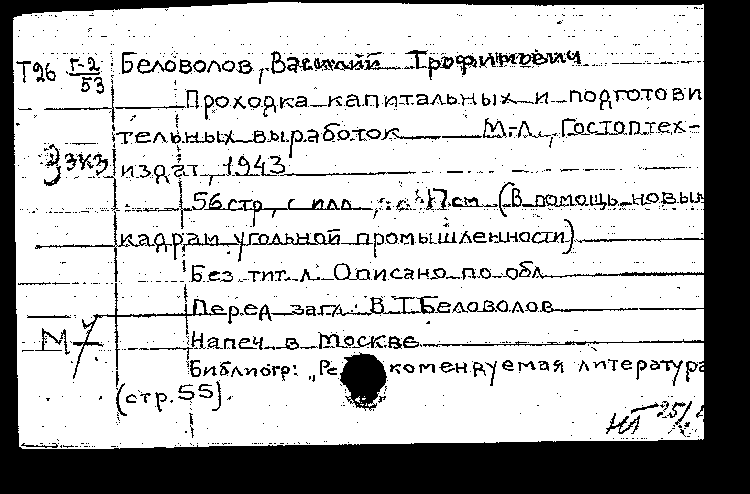 Т96 Г-2/53 Беловолов, Василий Трофимович
Проходка капитальных и подготови
тельных выработок М.-Л., Гостоптех-
З ЗКЗ издат, 1943
56 стр, с илл, 17 см (В помощь новым
кадрам угольной промышленности)
Без тит. л. Описано по обл
Перед загл: В.Т. Беловолов
М Напеч в Москве
Библиогр: „Рекомендуемая литература
(стр. 55).